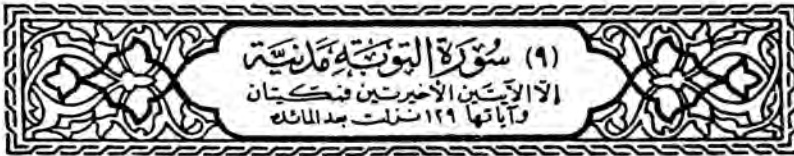 (٩) سُوْرَةِ التوبَةِ مَدَنيَّة
إلا الآيتين الأخيرتين فمكيتان
وآياتها ١٢٩ نزلت بعد المائدة